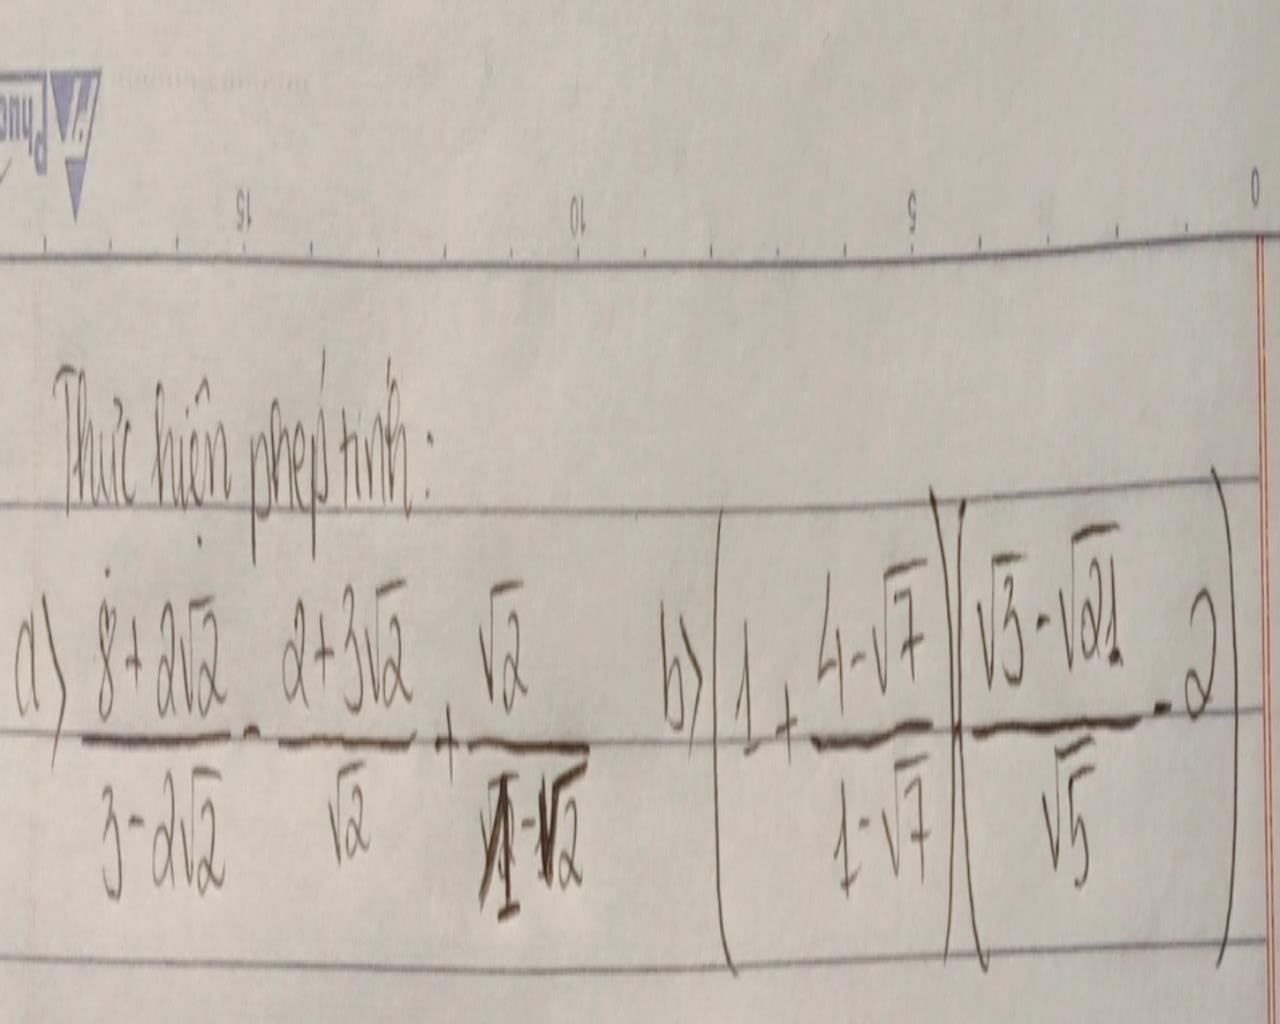 Phuc
15 10 5 0
Thực hiện phép tính:
a) \frac{8+2\sqrt{2}}{3-2\sqrt{2}} - \frac{2+3\sqrt{2}}{\sqrt{2}} + \frac{\sqrt{2}}{1-\sqrt{2}} b) \left(1+\frac{4-\sqrt{7}}{1-\sqrt{7}}\right)\left(\frac{\sqrt{3}-\sqrt{21}}{\sqrt{5}}-2\right)